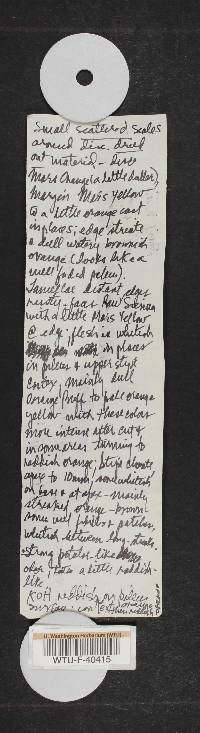 Small scattered scales
around disc. dried
out material - disc
Mars Orange (a little duller),
margin Mars Yellow
to a little orange cast
in places; edge striate
a dull watery brownish
orange (looks like a
well faded pileus).
Lamellae distant, edges
with a little Mars Yellow
@ edge; flesh is whitish
in places
in pileus & upper stipe
cortex, mainly dull
Orange Buff to pale orange
yellow with these colors
more intense after cut &
in some areas turning to
reddish orange; stipe
up to 10mm, some whitish
on base & at apex - mainly
streaked orange-brown
some well
whitish between long-strands.
Strong potato-like
odor; taste a little radish-
like
KOH reddish on pileus
surface;
U. Washington Herbarium (WTU)
WTU-F-40415